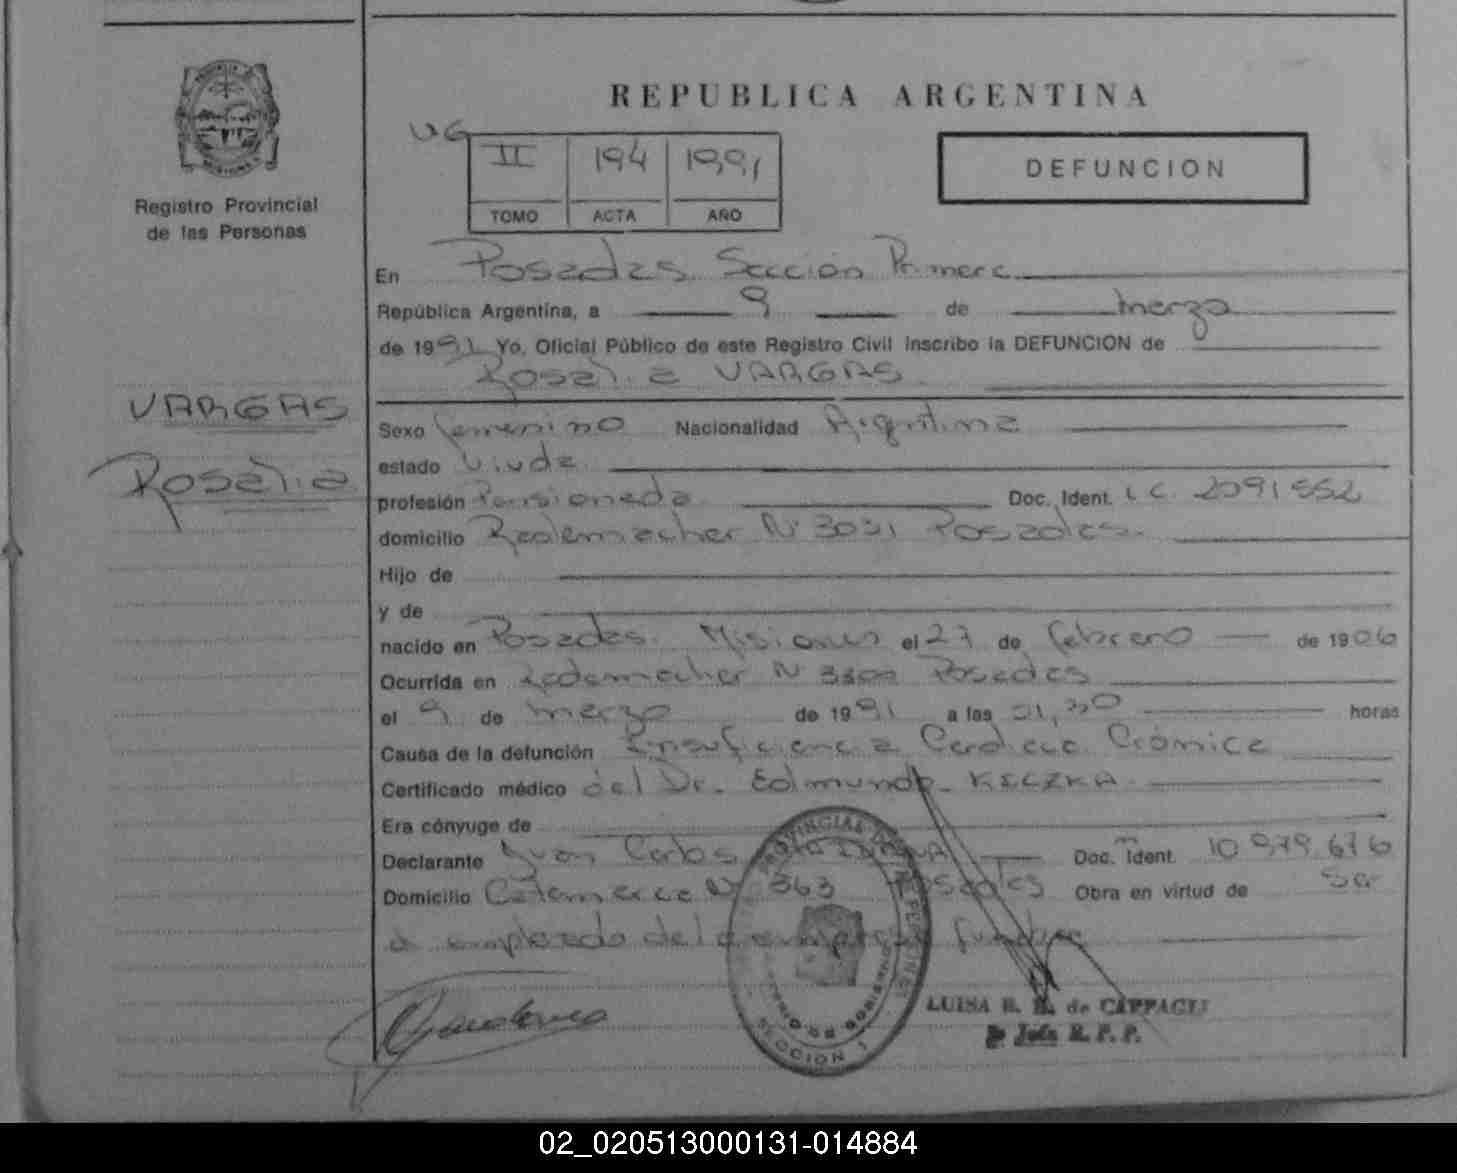 REPUBLICA ARGENTINA
UG
II 194 1991
TOMO ACTA AÑO
DEFUNCION
Registro Provincial
de las Personas
VARGAS
Rosalia
En Posadas Sección Primera
República Argentina, a 9 de marzo
de 1991 Yo, Oficial Público de este Registro Civil inscribo la DEFUNCION de
Rosalia VARGAS
Sexo femenino Nacionalidad Argentina
estado Viuda
profesión Pensionada Doc. Ident. L.C. 2091552
domicilio Rademacher Nº 3031 Posadas
Hijo de
y de
nacido en Posadas. Misiones el 27 de febrero de 1906
Ocurrida en Rademacher Nº Posadas
el 9 de marzo de 1991 a las 01,30 horas
Causa de la defunción Insuficiencia Cardiaca Crónica
Certificado médico del Dr. Edmundo KECZKA
Era cónyuge de
Declarante Juan Carlos Doc. Ident. 10.979.676
Domicilio Catamarca Nº 363 Posadas Obra en virtud de Ser
empleado de la empresa
PROVINCIAL DE LAS PERSONAS
SECCION 1
LUISA R. de CAPPAGLI
Jefa R. P. P.
02_020513000131-014884